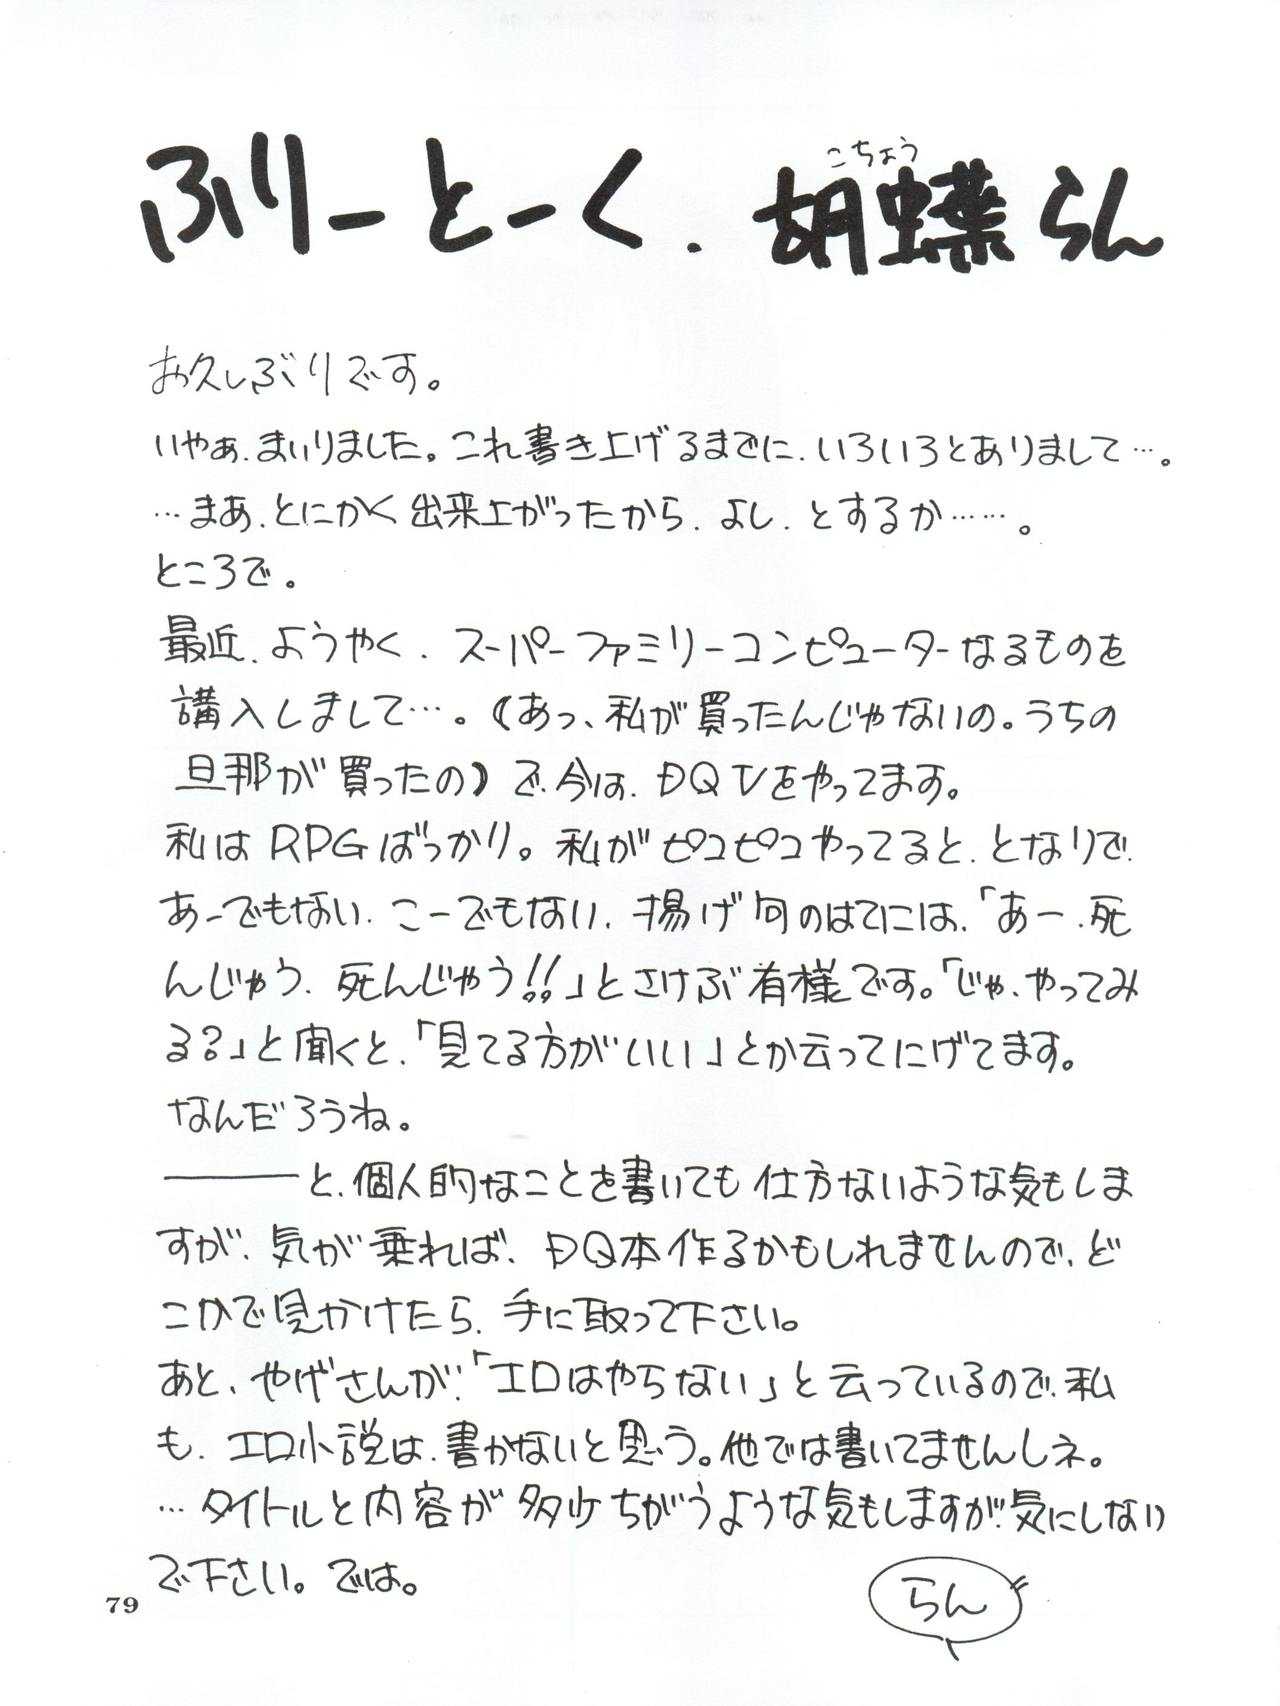 ふりーとーく. 胡蝶らん
こちょう
お久しぶりです。
いやぁ、まいりました。これ書き上げるまでに、いろいろとありまして…。
…まあ、とにかく出来上がったから、よし、とするか……。
ところで。
最近、ようやく、スーパーファミリーコンピューターなるものを
講入しまして…。(あっ、私が買ったんじゃないの。うちの
旦那が買ったの)で、今は、DQⅤをやってます。
私はRPGばっかり。私がピコピコやってると、となりで、
あーでもない、こーでもない、揚げ句のはてには、「あー、死
んじゃう、死んじゃう!!」とさけぶ有様です。「じゃ、やってみ
る?」と聞くと、「見てる方がいい」とか云ってにげてます。
なんだろうね。
――と、個人的なことを書いても仕方ないような気もしま
すが、気が乗れば、DQ本作るかもしれませんので、ど
こかで見かけたら、手に取って下さい。
あと、やげさんが、「エロはやらない」と云っているので、私
も、エロ小説は、書かないと思う。他では書いてませんしネ。
…タイトルと内容が多少ちがうような気もしますが、気にしない
で下さい。では。
らん
79